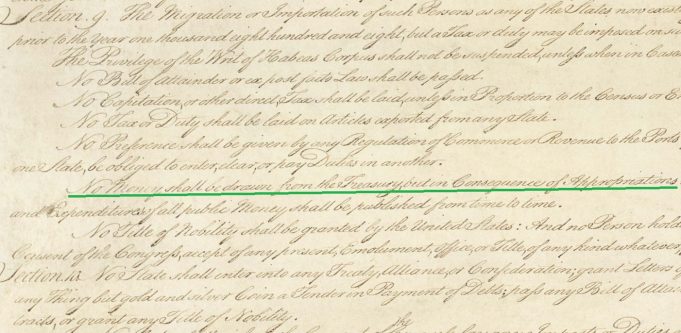 Section. 9. The Migration or Importation of such Persons as any of the States now exist
prior to the Year one thousand eight hundred and eight, but a Tax or duty may be imposed on su
The Privilege of the Writ of Habeas Corpus shall not be suspended, unless when in Cases
No Bill of Attainder or ex post facto Law shall be passed.
No Capitation, or other direct, Tax shall be laid, unless in Proportion to the Census or E
No Tax or Duty shall be laid on Articles exported from any State.
No Preference shall be given by any Regulation of Commerce or Revenue to the Ports
one State, be obliged to enter, clear, or pay Duties in another.
No Money shall be drawn from the Treasury, but in Consequence of Appropriations
and Expenditures of all public Money shall be published from time to time.
No Title of Nobility shall be granted by the United States: And no Person hold
Consent of the Congress, accept of any present, Emolument, Office, or Title, of any kind whatever,
Section. 10. No State shall enter into any Treaty, Alliance, or Confederation; grant Letters of
any Thing but gold and silver Coin a Tender in Payment of Debts; pass any Bill of Attai
tracts, or grant any Title of Nobility.
the